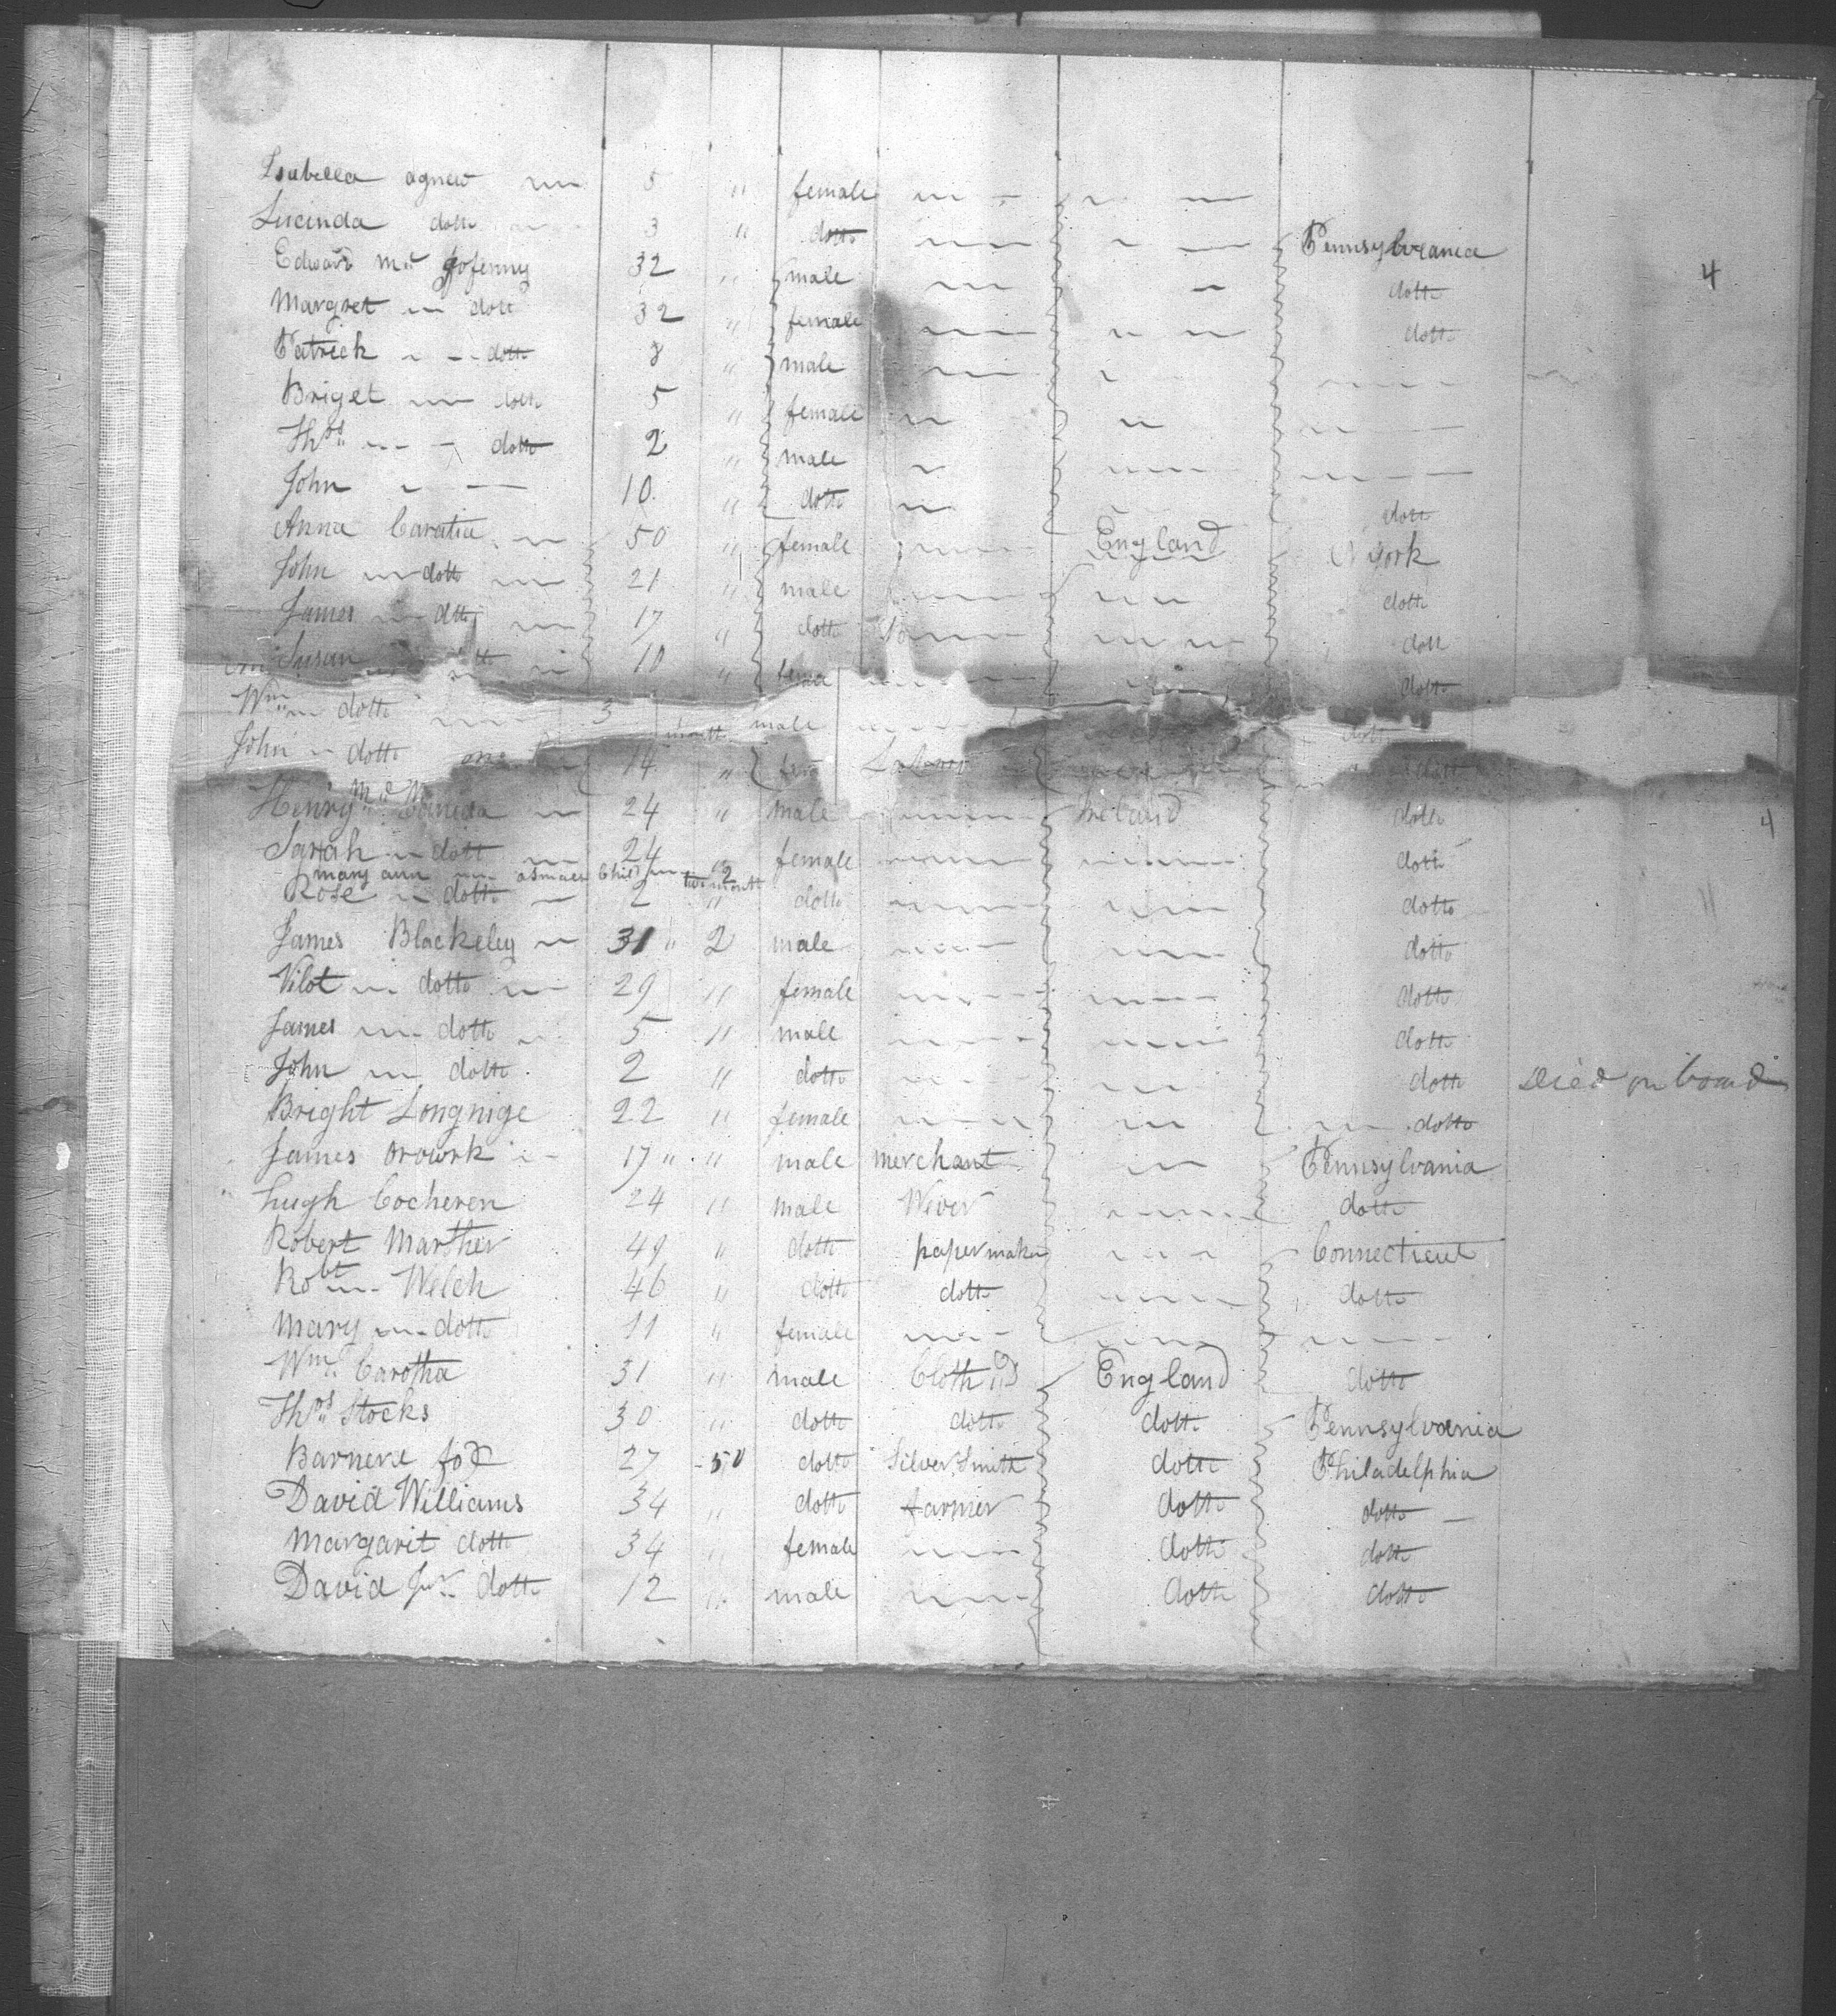 Isabella agnew 5 " female
Lucinda dotto 3 " dotto Pennsylvania
Edward Mc 32 " male dotto 4
Margret dott 32 " female dotto
Patrick dotto 8 " male
Briget dotto 5 " female
Thos dotto 2 " male
John 10 " dotto dott
Anna Caratia 50 " female England N york
John dotto 21 " male dotto
James dtto 17 " dotto dott
Susan 10 " dotto
Wm dotto 3 month male
John dotto 14 "
Henry 24 " male Ireland dotto
Sarah dott 24 female dott
mary ann Child 2 two month
Rose dotto 2 " dotto dotto
James Blackeley 31 " 2 male dotto
Vilot dotto 29 " female dotto
James dotto 5 " male dotto
John dotto 2 " dotto dotto Died on board
Bright Longnige 22 " female dotto
James orowrk 17 " " male merchant Pennsylvania
hugh Cocheren 24 " male Wever dotto
Robert Marther 49 " dotto papermaker Connecticut
Robt Welch 46 " dotto dotto dotto
Mary dotto 11 " female
Wm Carotha 31 " male Cloth England dotto
Thos Stocks 30 " dotto dotto dotto Pennsylvania
Barnerd fox 27 dotto Silver Smith dotto Philadelphia
David Williams 34 " dotto farmer dotto dotto
Margarit dotto 34 " female dotto dotto
David Jur dotto 12 " male dotto dotto